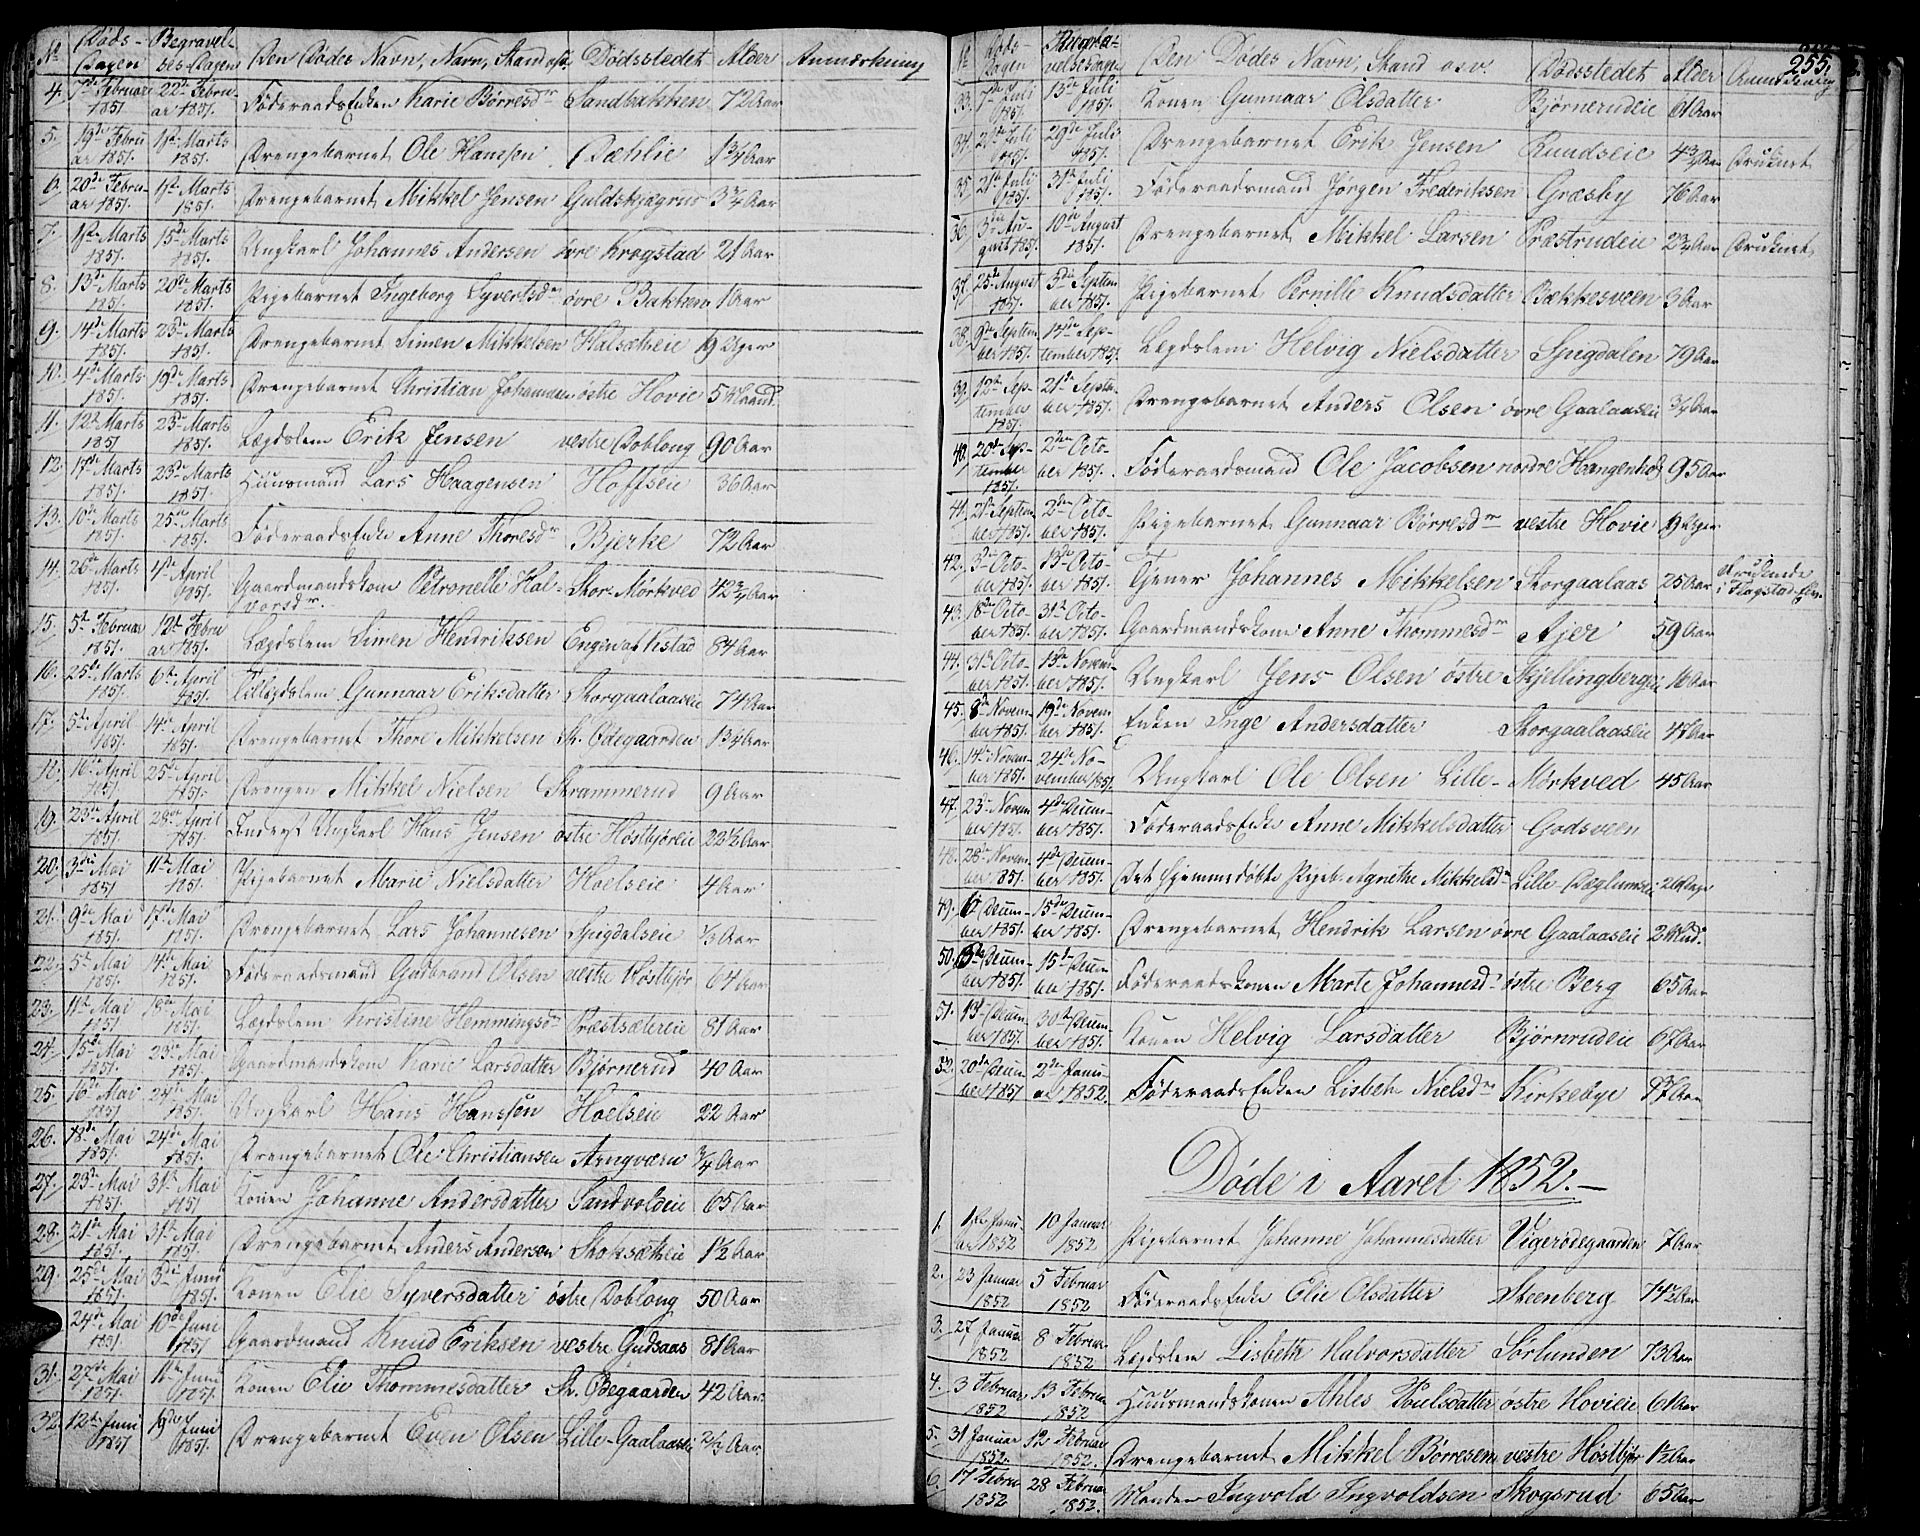 No Døds- Dagen Begravelses Dagen Den Dødes Navn, Navn, Stand osv. Dødsstedet Alder Anmærkning
4. 7de Februar 1851 22de Februar 1851. FøderaadsEnken Karie Børresdr Sandbakken 72 Aar
5. 19de Februar 1851. 1ste Marts 1851. Drengebarnet Ole Hanssen Dæhlie 1 3/4 Aar
6. 20de Februar 1851. 1ste Marts 1851 Drengebarnet Mikkel Jensen Guldskjægrus 3 3/4 Aar
7. 1ste Marts 1851. 15de Marts 1851. Ungkarl Johannes Andersen øvre Krogstad 21 Aar
8. 13de Marts 1851. 20de Marts 1851. Pigebarnet Ingeborg Syvertsdr øvre Bakken 1 Aar
9. 14de Marts 1851. 23de Marts 1851. Drengebarnet Simen Mikkelsen Halsætheie 19 Uger
10. 4de Marts 1851. 19de Marts 1851. Drengebarnet Christian Johannesen østre Hovie 5 Maand.
11. 12te Marts 1851 23de Marts 1851. Lægdslem Erik Jensen vestre Doblong 90 Aar
12. 17de Marts 1851. 23de Marts 1851. Huusmand Lars Haagensen Hoffseie 36 Aar
13. 10de Marts 1851. 25de Marts 1851. FøderaadsEnke Anne Thoresdr Bjerke 72 Aar
14. 26de Marts 1851. 4de April 1851. Gaardmandskone Petronelle Halvorsdr. Stor-Mørkved 42 3/4 Aar
15. 5te Februar 1851. 12te Februar 1851. Lægdslem Simen Hendriksen Engen af Kistad 84 Aar
16. 25de Marts 1851. 6te April 1851. Lægdslem Gunnaar Eriksdatter Storgaalaaseie 74 Aar
17. 5te April 1851. 14de April 1851. Drengebarnet Thore Mikkelsen St. Ødegaarden 1 3/4 Aar
18. 16de April 1851. 25de April 1851. Drengen Mikkel Nielsen Strammerud 9 Aar
19. 23de April 1851. 28de April 1851. Inderst Ungkarl Hans Jensen østre Høstbjøreie 22 1/2 Aar
20. 3die Mai 1851 11te Mai 1851. Pigebarnet Marie Nielsdatter Hoelseie 4 Aar
21. 9de Mai 1851. 17de Mai 1851. Drengebarnet Lars Johannesen Spigdalseie 1/3 Aar
22. 5te Mai 1851. 14de Mai 1851. Føderaadsmand Gudbrand Olsen vestre Høstbjør 64 Aar
23. 11te Mai 1851 18de Mai 1851. Lægdslem Kristine Hemmingsdr Præstsætereie 81 Aar
24. 15de Mai 1851. 23de Mai 1851. Gaardmandskone Karie Larsdatter Bjørnerud 40 Aar
25. 16de Mai 1851 24de Mai 1851. Ungkarl Hans Hanssen Hoelseie 22 Aar
26. 18de Mai 1851. 24de Mai 1851. Drengebarnet Ole Christiansen Arngværn 3/4 Aar
27. 23de Mai 1851. 31te Mai 1851 Konen Johanne Andersdatter Sandvoldeie 65 Aar
28. 21de Mai 1851. 31te Mai 1851. Drengebarnet Anders Andersen Stoksætheie 1 1/2 Aar
29. 25de Mai 1851. 3die Juni 1851. Konen Elie Syversdatter østre Doblong 50 Aar
24de Mai 1851. 10de Juni 1851 Gaardmand Knud Eriksen vestre Gudsaas 81 Aar
31. 27de Mai 1851. 11te Juni 1851. Konen Elie Thommesdatter St. Begaarden 42 Aar.
32. 12te Juni 1851 19de Juni 1851. Drengebarnet Even Olsen Lille-Gaalaaseie 2 1/2 Aar
255.
No Døds- Dagen Begravelsesdag Den Dødes Navn, Stand osv. Dødsstedet Alder Anmærkning
33. 7de Juli 1851. 13de Juli 1851. Konen Gunnaar Olsdatter Bjørnerudeie 61 Aar
34. 21de Juli 1851. 29de Juli 1851. Drengebarnet Erik Jensen Ruudseie 4 3/4 Aar Druknet
35. 21de Juli 1851. 31te Juli 1851. Føderaadsmand Jørgen Frederiksen Græsby 76 Aar
36. 3die August 1851. 10de August 1851. Drengebarnet Mikkel Larsen Præstrudeie 2 3/4 Aar Druknet
37. 25de August 1851. 3die September 1851. Pigebarnet Pernille Knudsdatter Bækkesveen 3 Aar
38. 9de September 1851. 14de September 1851. Lægdslem Helvig Nielsdatter Spigdalen 79 Aar
39. 12te September 1851. 21de September 1851. Drengebarnet Anders Olsen øvre Gaalaaseie 3/4 Aar
40. 20de September 1851. 2den October 1851. Føderaadsmand Ole Jacobsen nordre Hangenholt 95 Aar
41. 21de September 1851. 2den October 1851. Pigebarnet Gunnaar Børresdr vestre Hovie 19 Uger
42. 3die October 1851. 13de October 1851. Tjener Johannes Mikkelsen Storgaalaas 25 Aar Druknede i Flagstad-Elv.
43. 18de October 1851. 31te October 1851. Gaardmandskone Anne Thommesdr Ajer 59 Aar
44. 31te October 1851. 13de November 1851. Ungkarl Jens Olsen østre Skjellingbergeie 16 Aar
45. 8de November 1851. 19de November 1851. Enken Inge Andersdatter Storgaalaaseie 47 Aar
46. 14de November 1851. 24de November 1851. Ungkarl Ole Olsen Lille-Mørkved 45 Aar
47. 23de November 1851. 4de December 1851. FøderaadsEnke Anne Mikkelsdatter Godsveen
48. 28de November 1851. 4de December 1851. Det hjemmedøbte Pigeb. Agnethe Mikkelsdr Lille Dæglumseie 26 Dage
49. 6te December 1851. 15de December 1851. Drengebarnet Hendrik Larsen øvre Gaalaaseie 2 Mdr.
50. December 1851. 15de December 1851. Føderaadskonen Marte Johannesdr østre Berg 65 Aar
51. 19de December 1851. 30te December 1851. Konen Helvig Larsdatter Bjørnrudeie 67 Aar
52. 20de December 1851 2den Januar 1852. FøderaadsEnken Lisbeth Nielsdr Kirkebye Aar
Døde i Aaret 1852.-
1. 1ste Januar 1852 10 Januar 1852 Pigebarnet Johanne Johannesdatter Vigerødegaarden 7 Aar
2. 23 Januar 1852 5 Februar 1852 FøderaadsEnke Elie Olsdatter Steenberg 74 1/2 Aar
3. 27 Januar 1852 8 Februar 1852 Lægdslem Lisbeth Halvorsdatter Sørlunden 73 Aar
4. 3 Februar 1852 13 Februar 1852 Huusmandskonen Ahles Poulsdatter østre Hovieie 61 Aar
5. 31 Januar 1852. 12 Februar 1852. Drengebarnet Mikkel Børresen vestre Høstbjør 1 1/2 Aar
6. 17 Februar 1852 28 Februar 1852. Manden Ingvold Ingvoldsen Skogsrud 65 Aar